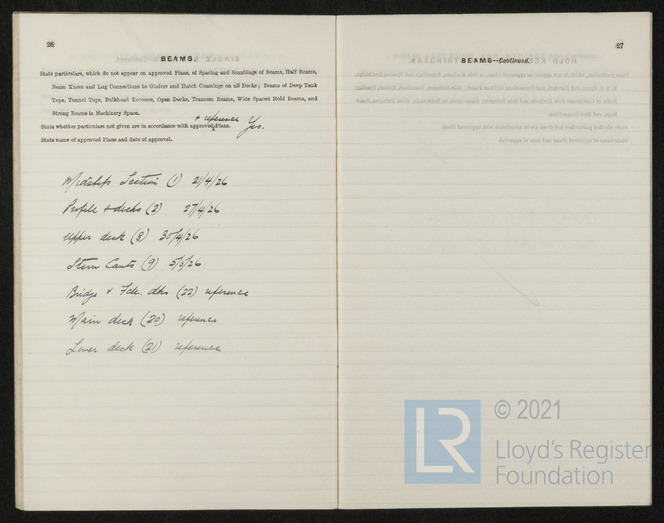 26
BEAMS.
State particulars, which do not appear on approved Plans, of Spacing and Scantlings of Beams, Half Beams,
Beam Knees and Lug Connections to Girders and Hatch Coamings on all Decks; Beams of Deep Tank
Tops, Tunnel Tops, Bulkhead Recesses, Open Decks, Transom Beams, Wide Spaced Hold Beams, and
Strong Beams in Machinery Space.
+ reference
State whether particulars not given are in accordance with approved Plans. Yes.
State name of approved Plans and date of approval.
Midship Section (1) 21/4/26
Profile & decks (2) 27/4/26
Upper deck (8) 30/4/26
Stern Cants (9) 5/5/26
Bridge & Fcle. dks (22) reference
Main deck (20) reference
Lower deck (21) reference
27
BEAMS—Continued.
© 2021
LR
Lloyd's Register
Foundation